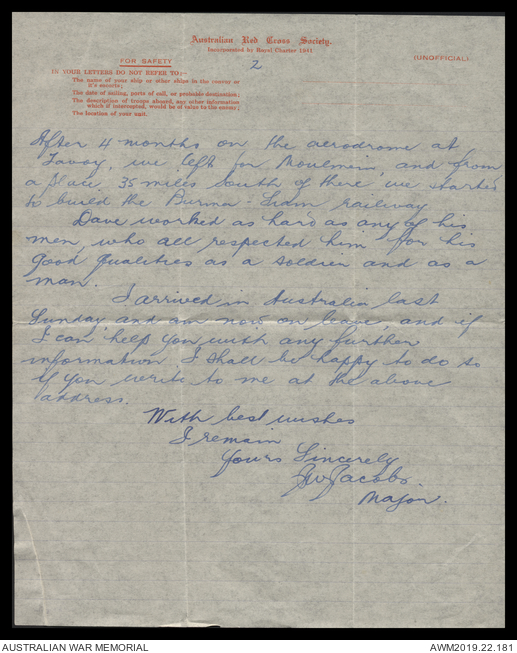 Australian Red Cross Society.
Incorporated by Royal Charter 1941
(UNOFFICIAL)
2
FOR SAFETY
IN YOUR LETTERS DO NOT REFER TO:—
The name of your ship or other ships in the convoy or
it's escorts;
The date of sailing, ports of call, or probable destination;
The description of troops aboard, any other information
which if intercepted, would be of value to the enemy;
The location of your unit.
After 4 months on the aerodrome at
Tavoy, we left for Moulmein, and from
a place 35 miles South of there we started
to build the Burma-Siam railway
Dave worked as hard as any of his
men, who all respected him for his
good qualities as a soldier and as a
man.
I arrived in Australia last
Sunday and am now on leave, and if
I can help you with any further
information I shall be happy to do so
if you write to me at the above
address.
With best wishes
I remain
Yours Sincerely
Jacobs.
Major.
AUSTRALIAN WAR MEMORIAL
AWM2019.22.181